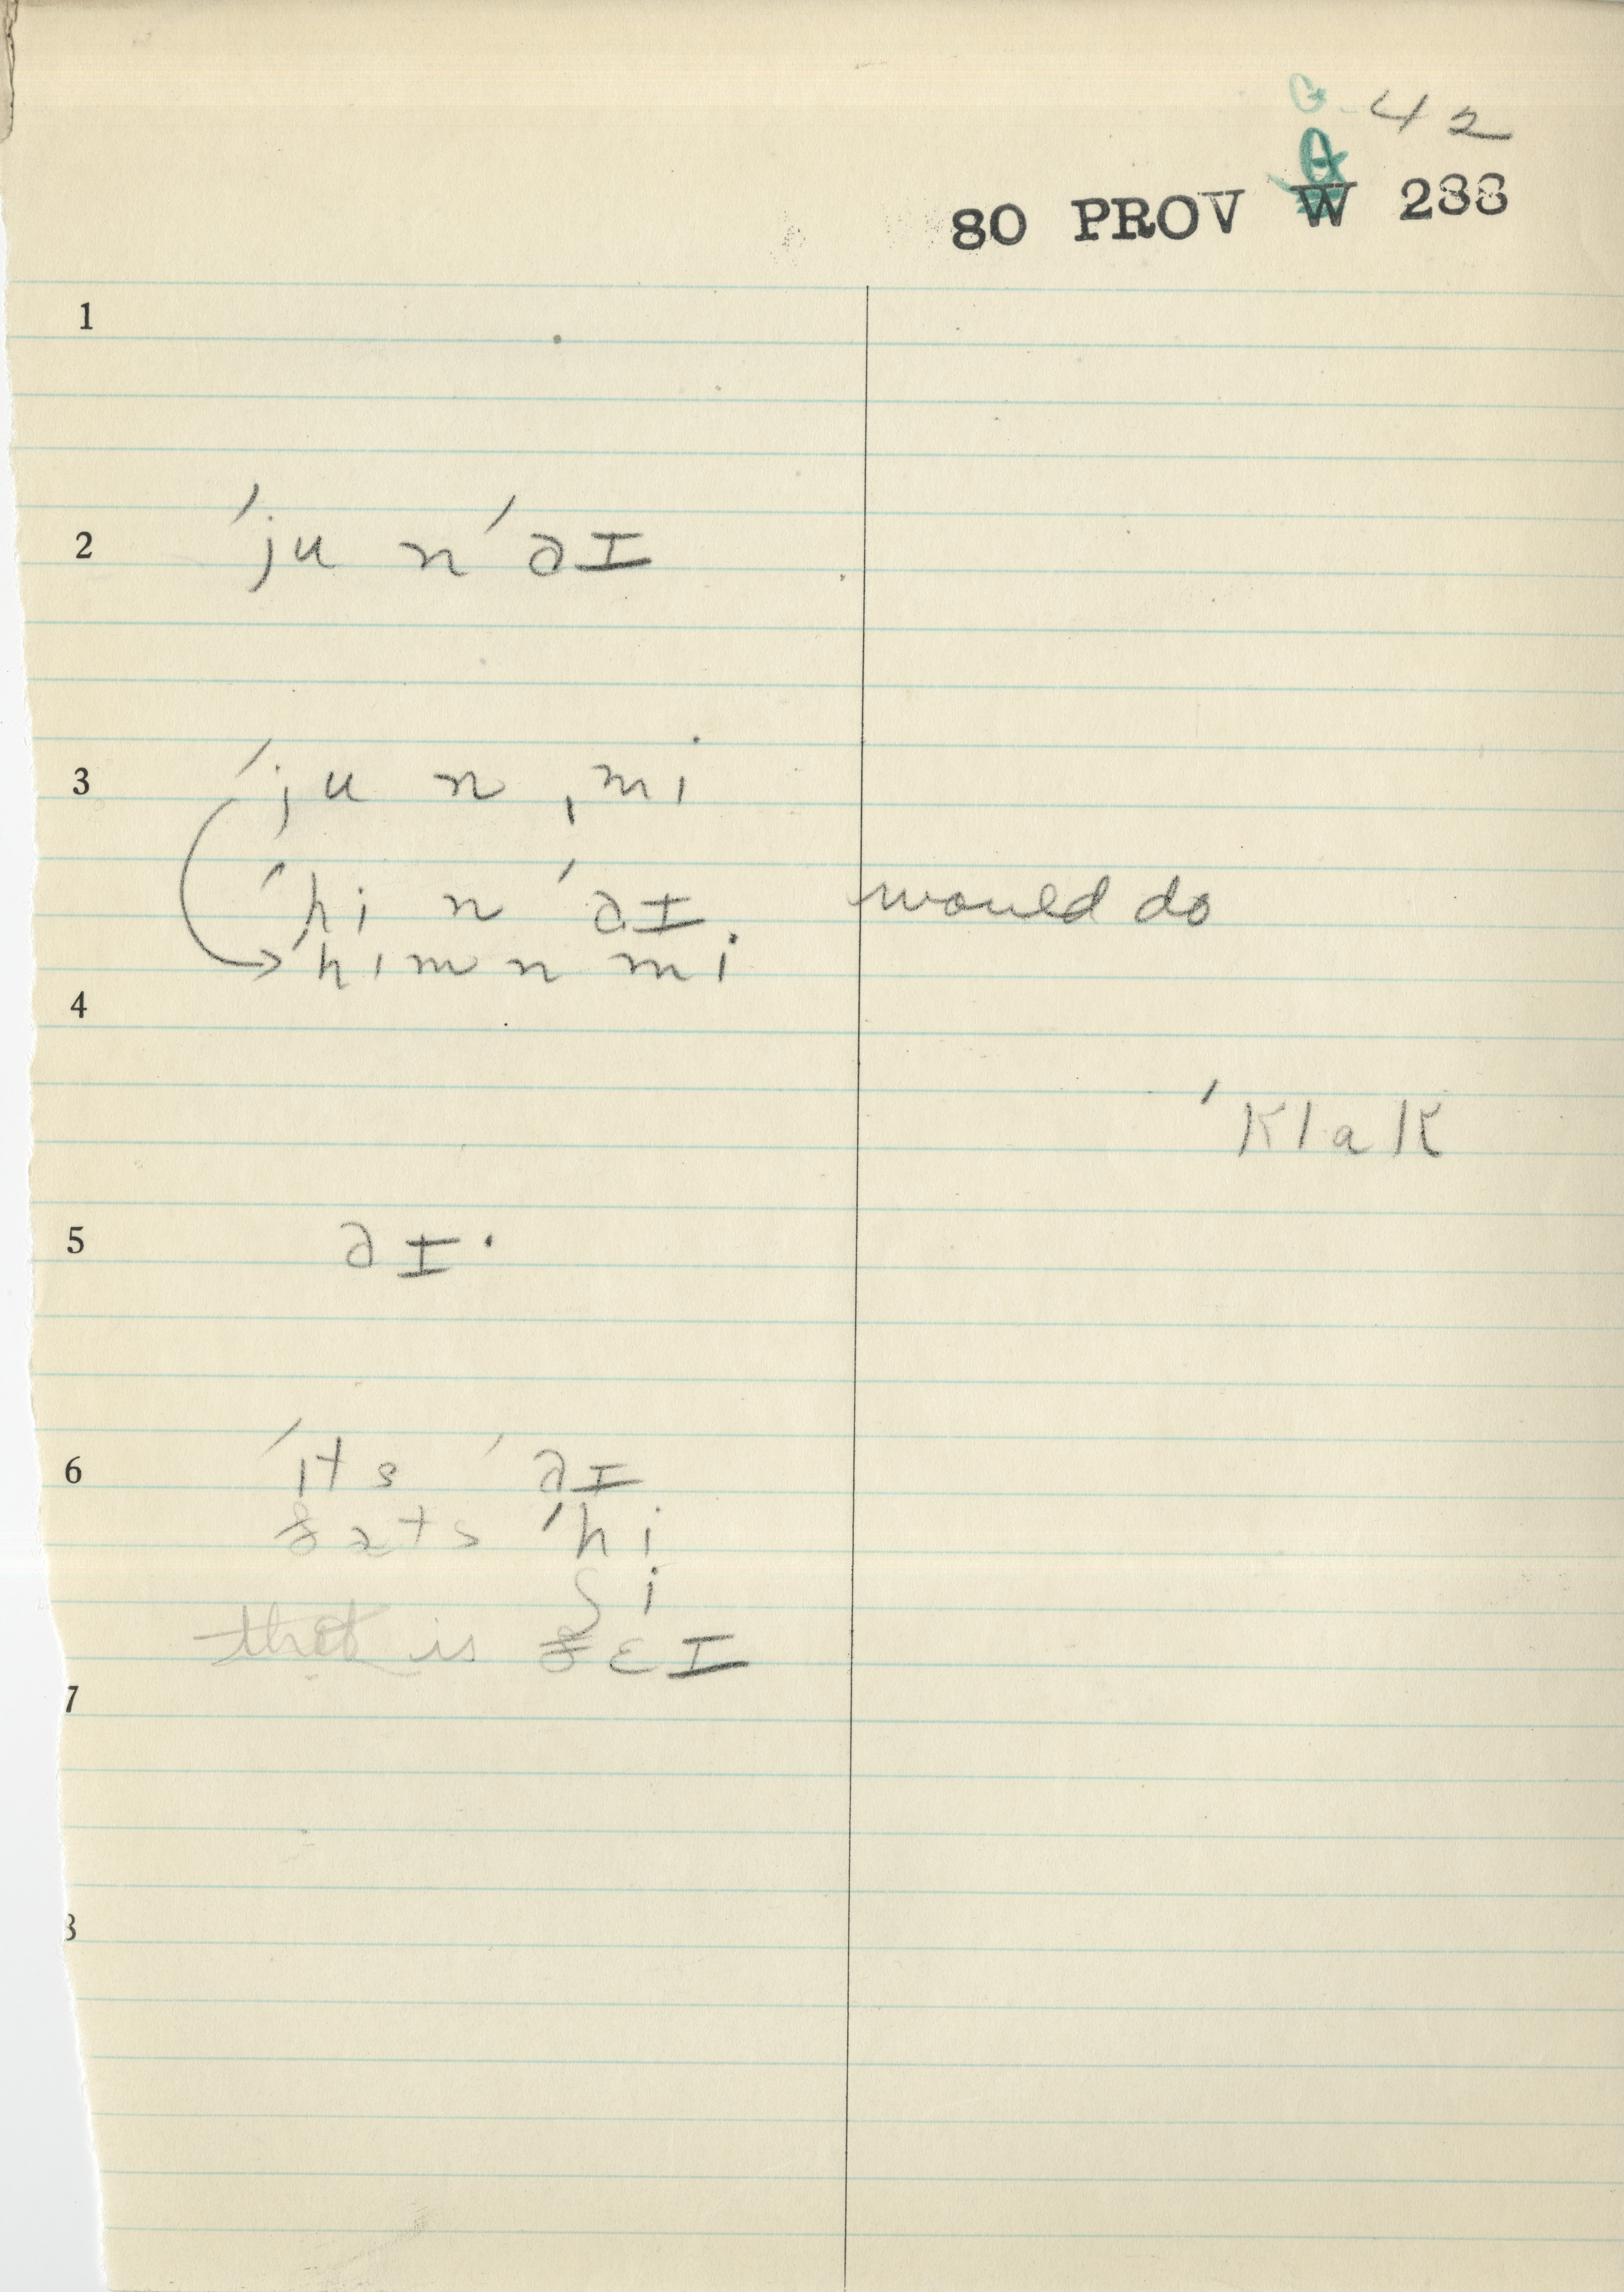 G-42
G
80 PROV W 288
1
2 ˈju n ˈaɪ
3 ˈju n ˌmi
ˈhi n ˈaɪ would do
→ ˈhɪm n mi
4
ˈklak
5 aɪ·
6 ˈɪts ˈaɪ
ðats ˈhi
ʃi
that is ðɛɪ
7
8